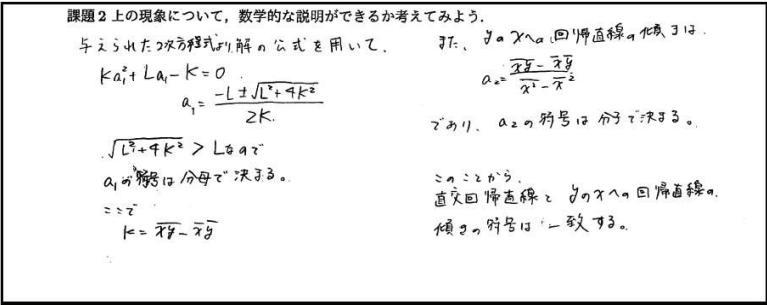 課題2 上の現象について，数学的な説明ができるか考えてみよう．
与えられた2次方程式より解の公式を用いて、
Ka₁²+La₁-K=0
a₁= (-L±√(L²+4K²))/2K
√(L²+4K²) > Lなので
a₁の符号は分母で決まる。
ここで
K= x̄ȳ - x̄ ȳ
また、yのxへの回帰直線の傾きは、
a₂= (x̄ȳ - x̄ ȳ)/(x̄² - x̄²)
であり、a₂の符号は分子で決まる。
このことから、
直交回帰直線とyのxへの回帰直線の
傾きの符号は一致する。